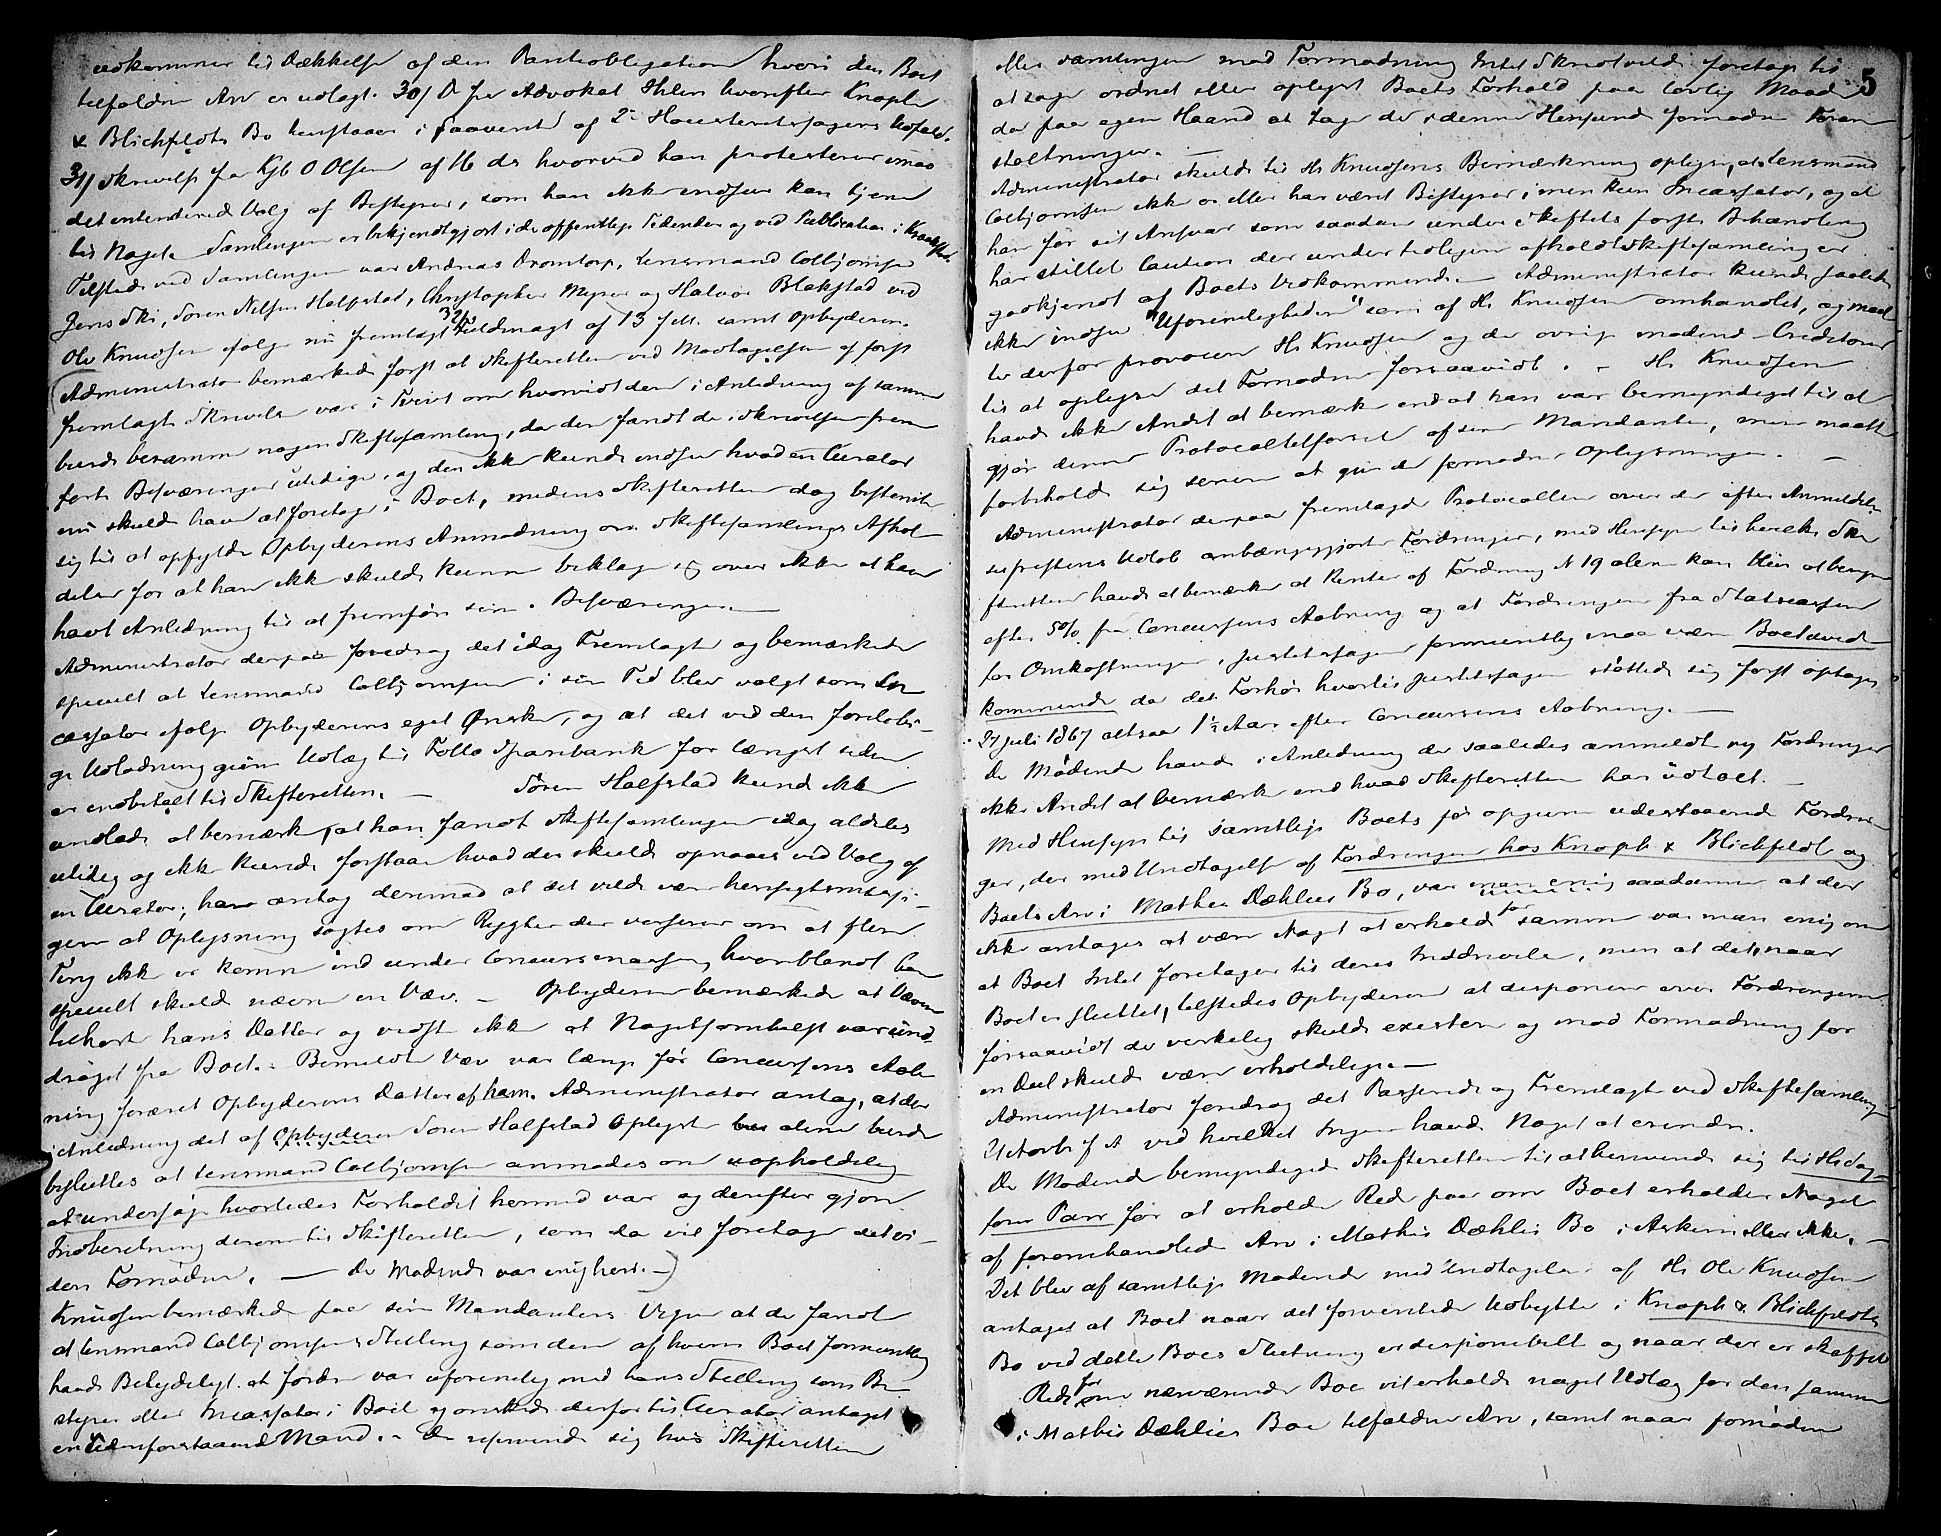 vedkommer til Dækkelse af den Pantobligation hvori den Boet
tilfaldne Arv er udlagt. 30/ D fra Advokat Ihlen hvorefter Knoph
& Blichfeldts Bo henstaaer i Paavente af 2de Høiesteretssagers Udfald.
31/ Skrivelse fra Kjb O Olsen af 16 ds hvorved han protesterer imod
det intenderede Valg af Bestyrer, som han ikke indseer kan tjene
til Noget. Samlingen er bekjendtgjort i de offentlige Tidender og ved Publication i Kraakstad.
Tilstede ved Samlingen var Andreas Dromtorp, Lensmand Colbjørnsen
Jens Ski, Søren Nilsen Halfstad, Christopher Myrer og Halvor Blakstad ved
Ole Knudsen ifølge nu fremlagt 32/ Fuldmagt af 13 ds. samt Opbyderen.
Administrator bemærkede først at Skifteretten ved Modtagelsen af først
fremlagte Skrivelse var i Tvivl om hvorvidt den i Anledning af samme
burde beramme nogen Skiftesamling, da den fandt de i Skrivelsen frem
førte Besværinger utidige, og den ikke kunde indsee hvad en Curator
nu skulde have at foretage i Boet, medens Skifteretten dog bestemte
sig til at opfylde Opbyderens Anmodning om Skiftesamlings Afhol
delse for at han ikke skulde kunne beklage sig over ikke at have
havt Anledning til at fremføre sine Besværinger. —
Administrator derpaa foredrog det idag Fremlagte og bemærkede
specielt at Lensmand Colbjørnsen i sin Tid blev valgt som In
cassator ifølge Opbyderens eget Ønske, og at det ved den foreløbi-
ge Udlodning givne Udlæg til Follo Sparebank for længst siden
er indbetalt til Skifteretten. — Søren Halfstad kunde ikke
undlade at bemærke, at han fandt Skiftesamlingen idag aldeles
utidig og ikke kunde forstaa hvad der skulde opnaaes ved Valg af
en Curator; han antog derimod at det vilde være hensigtsmæssi-
gere at Oplysning søgtes om Rygter der verserer om at flere
Ting ikke er komne ind under Concursmassen, hvoriblandt han
specielt skulde nævne en Væv. — Opbyderen bemærkede at Væven
tilhørte hans Datter og vidste ikke at Nogetsomhelst var und-
draget fra Boet. Bemeldte Væv var længe før Concursens Aab
ning foræret Opbyderens Datter af ham. Administrator antog, at der
i Anledning det af Opbyderen Søren Halfstad Oplyste alene burde
besluttes at Lensmand Colbjørnsen anmodes om uopholdelig
at undersøge hvorledes Forholdet hermed var og derefter gjøre
Indberetning derom til Skifteretten, som da vil foretage det vi-
dere Fornødne. — De Mødende var enig heri. —)
Knudsen bemærkede paa sin Mandanters Vegne at de fandt
at Lensmand Colbjørnsens Stilling som den af hvem Boet formentlig
havde Betydeligt at fordre var uforenelig med hans Stilling som Be
styrer eller Incassator i Boet og ønskede derfor til Curator antaget
en udenforstaaende Mand. — De reserverede sig hvis Skifteretten
5
eller Samlingen mod Formodning Intet skulde ville foretage til
at søge ordnet eller oplyst Boets Forhold paa lovlig Maade
da paa egen Haand at tage de i denne Henseende fornødne Foran
staltninger. —
Administrator skulde til Hr Knudsens Bemærkning oplyse, at Lensmand
Colbjørnsen ikke er eller har været Bestyrer, men kun Incassator, og at
han for sit Ansvar som saadan under Skiftets første Behandling
har stillet Caution der under tidligere afholdt Skiftesamling er
godkjendt af Boets Vedkommende. — Administrator kunde saaledes
ikke indsee "Uforeneligheden" som af Hr Knudsen omhandlet, og maat
te derfor provocere Hr Knudsen og de øvrige mødende Creditorer
til at oplyse det Fornødne forsaavidt. — Hr Knudsen
havde ikke Andet at bemærke end at han var bemyndiget til at
gjøre denne Protocoltilførsel af sine Mandanter, men maatte
forbeholde sig senere at give de fornødne Oplysninger. —
Administrator derpaa fremlagde Protocollen over de efter Anmeldel
sesfristens Udløb anbængiggjorte Fordringer, med Hensyn til hvilke Ski
fteretten havde at bemærke at Renter af Fordring N 19 alene kan blive at beregne
efter 5% fra Concursens Aabning og at Fordringen fra Statscassen
for Omkostninger i Justitssagen formentlig maa være Boet uved-
kommende da det Forhør hvortil Justitssagen støttede sig først optoges
27 Juli 1867 altsaa 1½ Aar efter Concursens Aabning. —
De Mødende havde i Anledning de saaledes anmeldte ny Fordringer
ikke Andet at bemærke end hvad Skifteretten har udtalt. —
Med Hensyn til samtlige Boets før opgivne udestaaende Fordrin
ger, der med Undtagelse af Fordringen hos Knoph & Blichfeldt og
Boets Arv i Mathis Dæhlies Bo, var man enig saadanne at der
ikke antages at være Noget at erholde for samme var man enig om
at Boet Intet foretager til deres Inddrivelse, men at det, naar
Boet er sluttet, tilstedes Opbyderen at disponere over Fordringerne
forsaavidt de virkelig skulde existere og mod Formodning for
en Deel skulde være erholdelige. —
Administrator foredrog det Passerede og Fremlagte ved Skiftesamling
2 Octorb f A ved hvilket Ingen havde Noget at erindre.
De Mødende bemyndigede Skifteretten til at henvende sig til Hr Sag-
fører Parr for at erholde Rede paa om Boet erholder Noget
af foromhandlede Arv i Mathis Dæhlis Bo i Askim eller ikke. —
Det blev af samtlige Mødende med Undtagelse af Hr Ole Knudsen
antaget at Boet naar det forventede Udbytte i Knoph & Blichfeldts
Bo ved dette Boes Slutning er disponibelt og naar der er skaffet
Rede for om nærværende Boe vil erholde noget Udlæg for den samme
i Mathis Dæhlies Boe tilfaldne Arv, samt naar fornøden